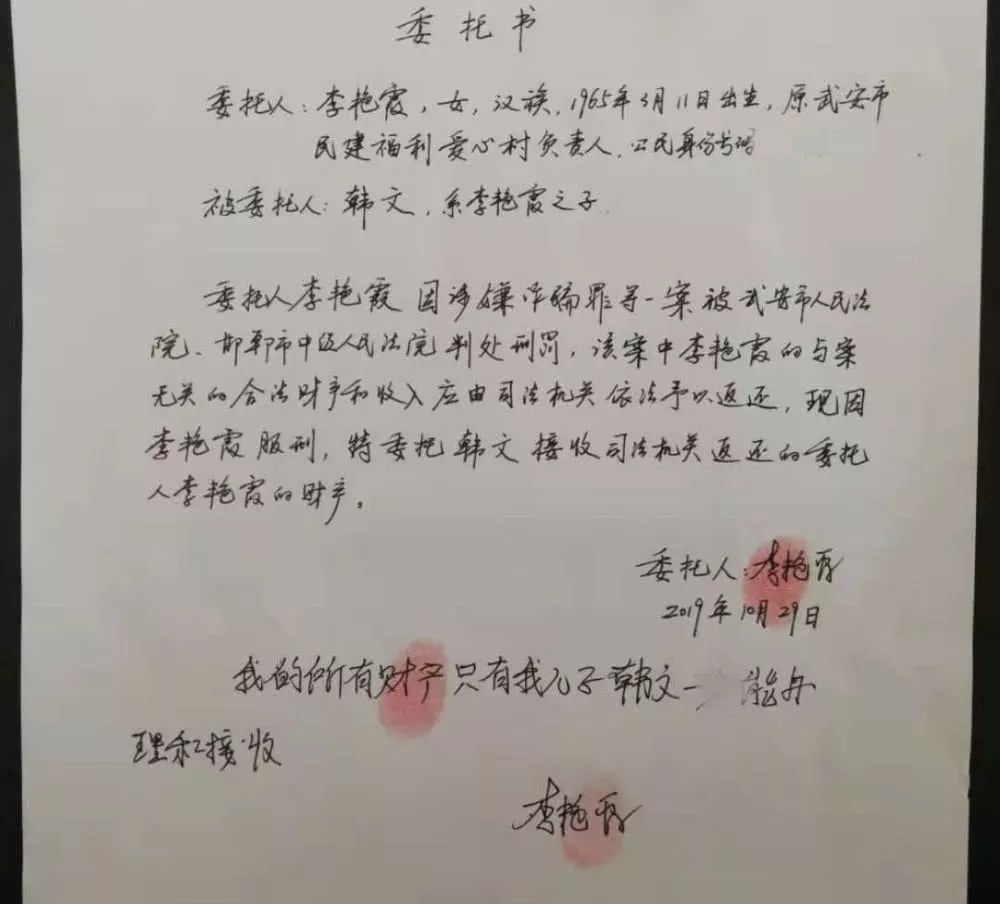 委托书
委托人：李艳霞，女，汉族，1965年3月11日出生，原武安市
民建福利爱心村负责人，公民身份号码
被委托人：韩文，系李艳霞之子。
委托人李艳霞因涉嫌诈骗罪等一案被武安市人民法
院、邯郸市中级人民法院判处刑罚，该案中李艳霞的与案
无关的合法财产和收入应由司法机关依法予以返还，现因
李艳霞服刑，特委托韩文接收司法机关返还的委托
人李艳霞的财产。
委托人：李艳霞
2019年10月29日
我的所有财产只有我儿子韩文一 能办
理和接收
李艳霞